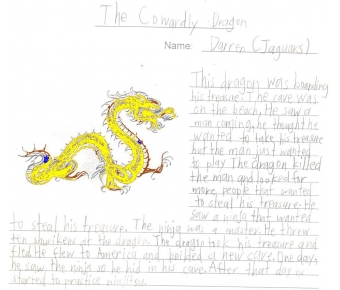 The Cowardly Dragon
Name: Darren (Jaguars)
This dragon was
his treasure. The cave was
on the beach. He saw a
man coming, he thought he
wanted to take his treasure
but the man just wanted
to play. The dragon killed
the man and looked for
more people that wanted
to steal his treasure. He
saw a ninja that wanted
to steal his treasure. The ninja was a master. He threw
ten shurikens at the dragon. The dragon took his treasure and
fled. He flew to America and a new cave. One day,
he saw the ninja so he hid in his cave. After that day he
started to practice ninjitsu.